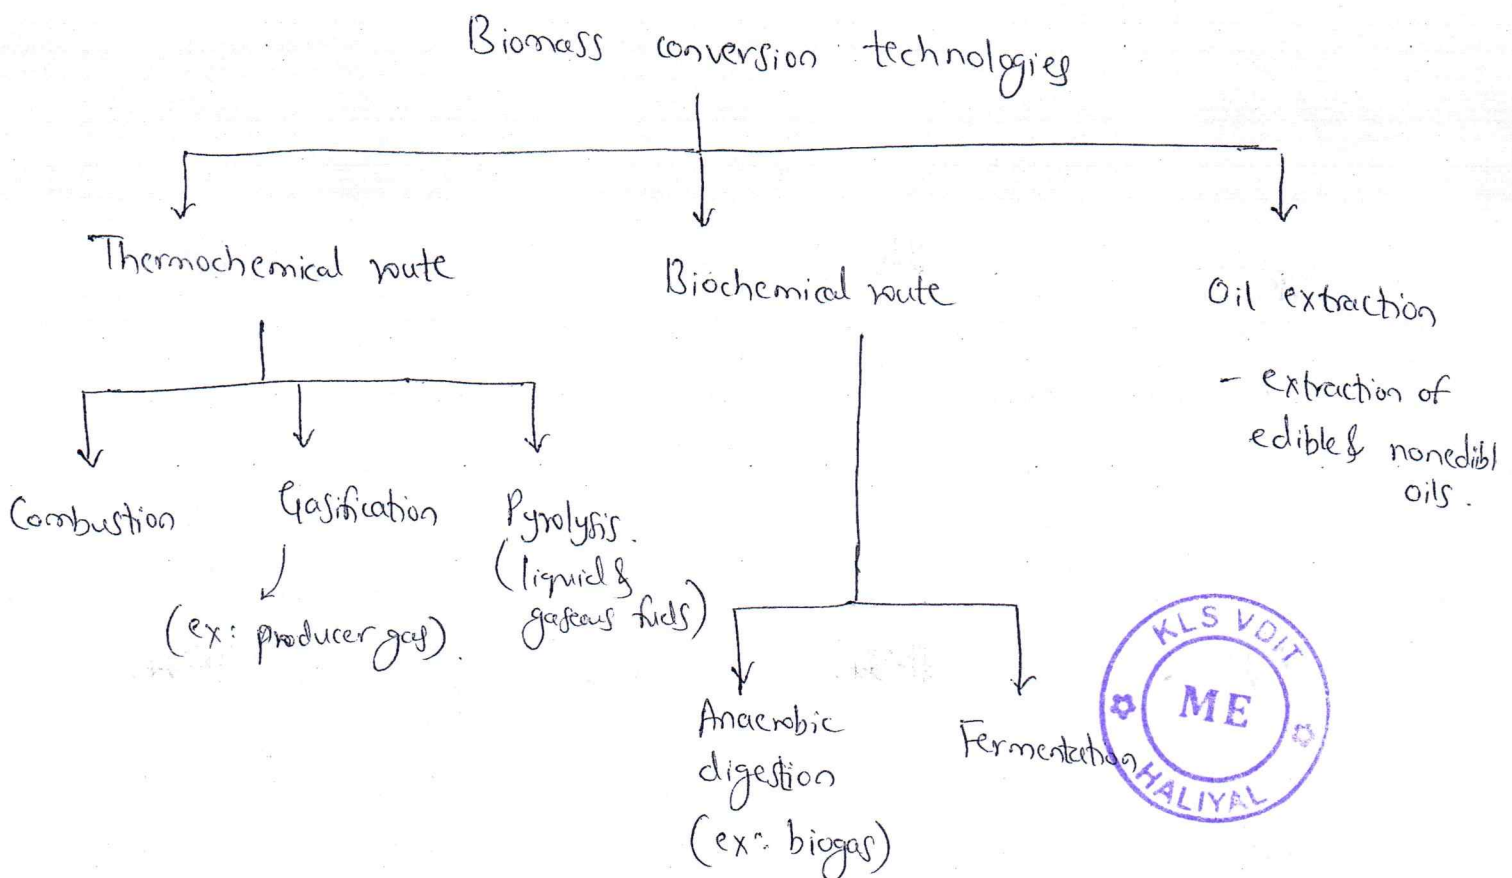 Biomass conversion technologies
Thermochemical route
Biochemical route
Oil extraction
- extraction of
edible & nonedibl
oils.
Combustion
Gasification
Pyrolysis.
(liquid &
gaseous fuels)
(ex: producer gas).
Anaerobic
digestion
(ex: biogas)
Fermentation
KLS VDIT
ME
HALIYAL